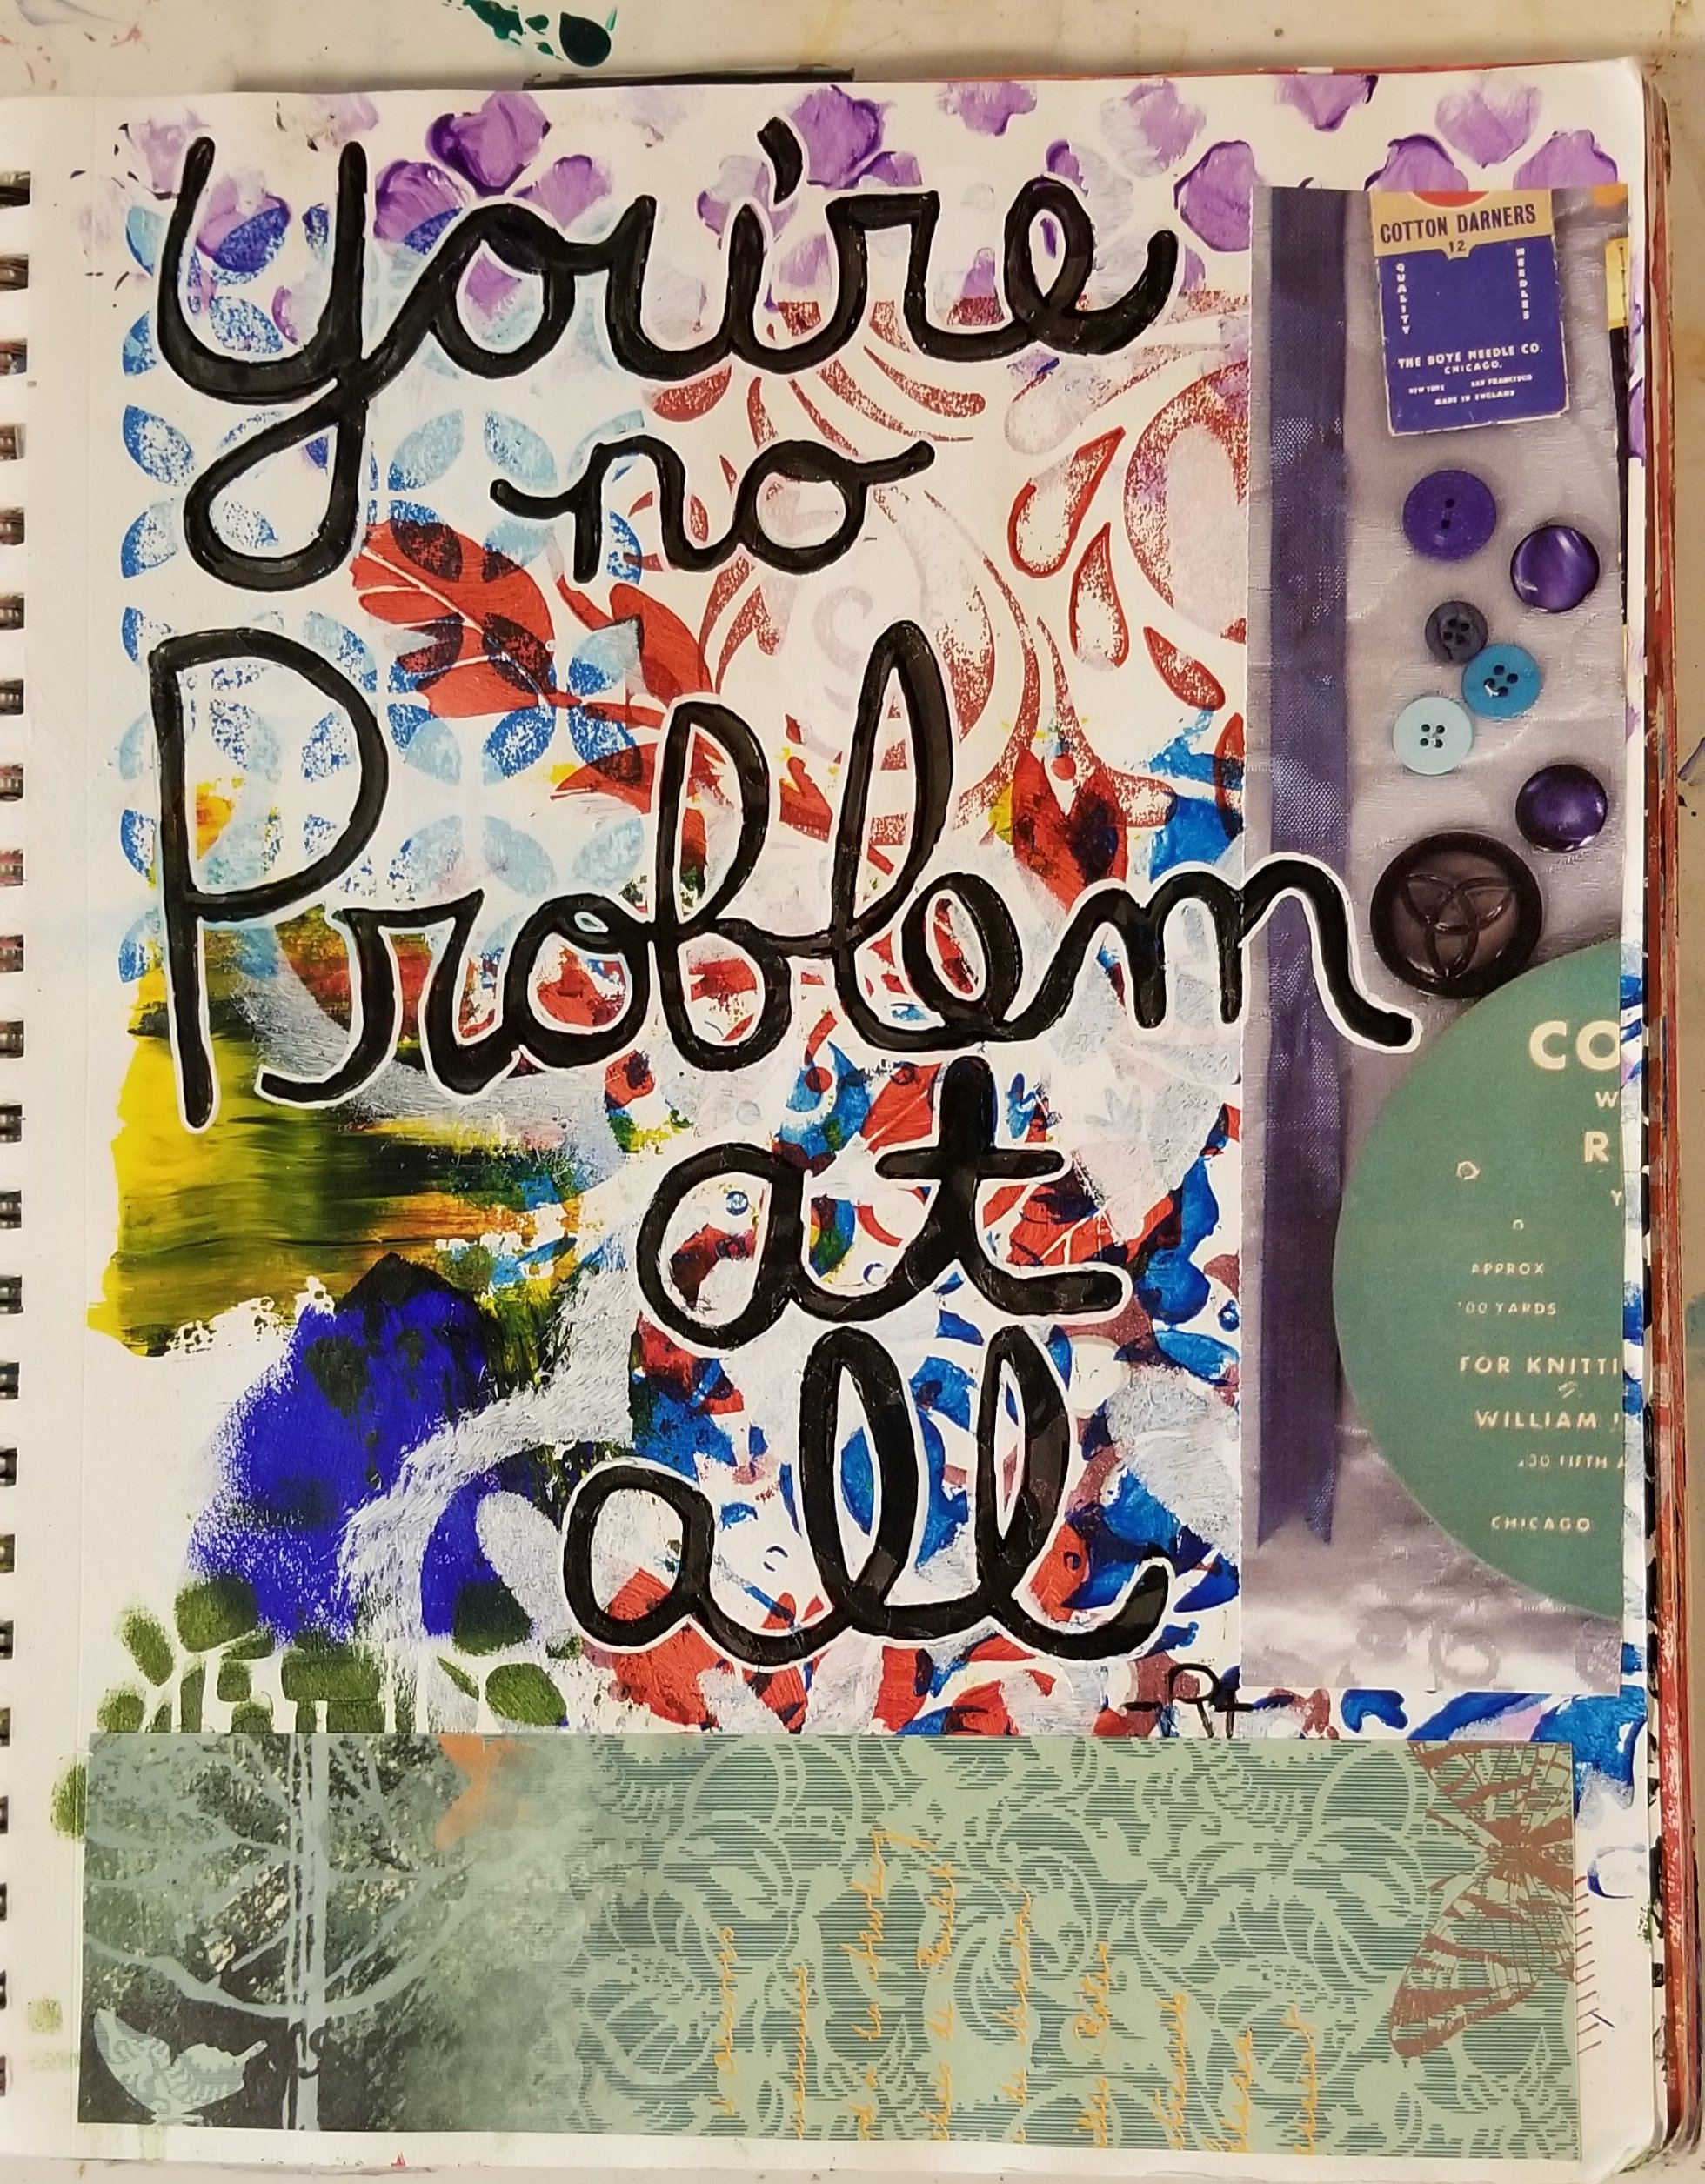 You're
no
Problem
at
all
COTTON DARNERS
12
QUALITY
NEEDLES
THE BOYE NEEDLE CO.
CHICAGO.
NEW YORK SAN FRANCISCO
MADE IN ENGLAND
CO
W
R
Y
APPROX
100 YARDS
FOR KNITTI
WILLIAM
30 FIFTH A
CHICAGO